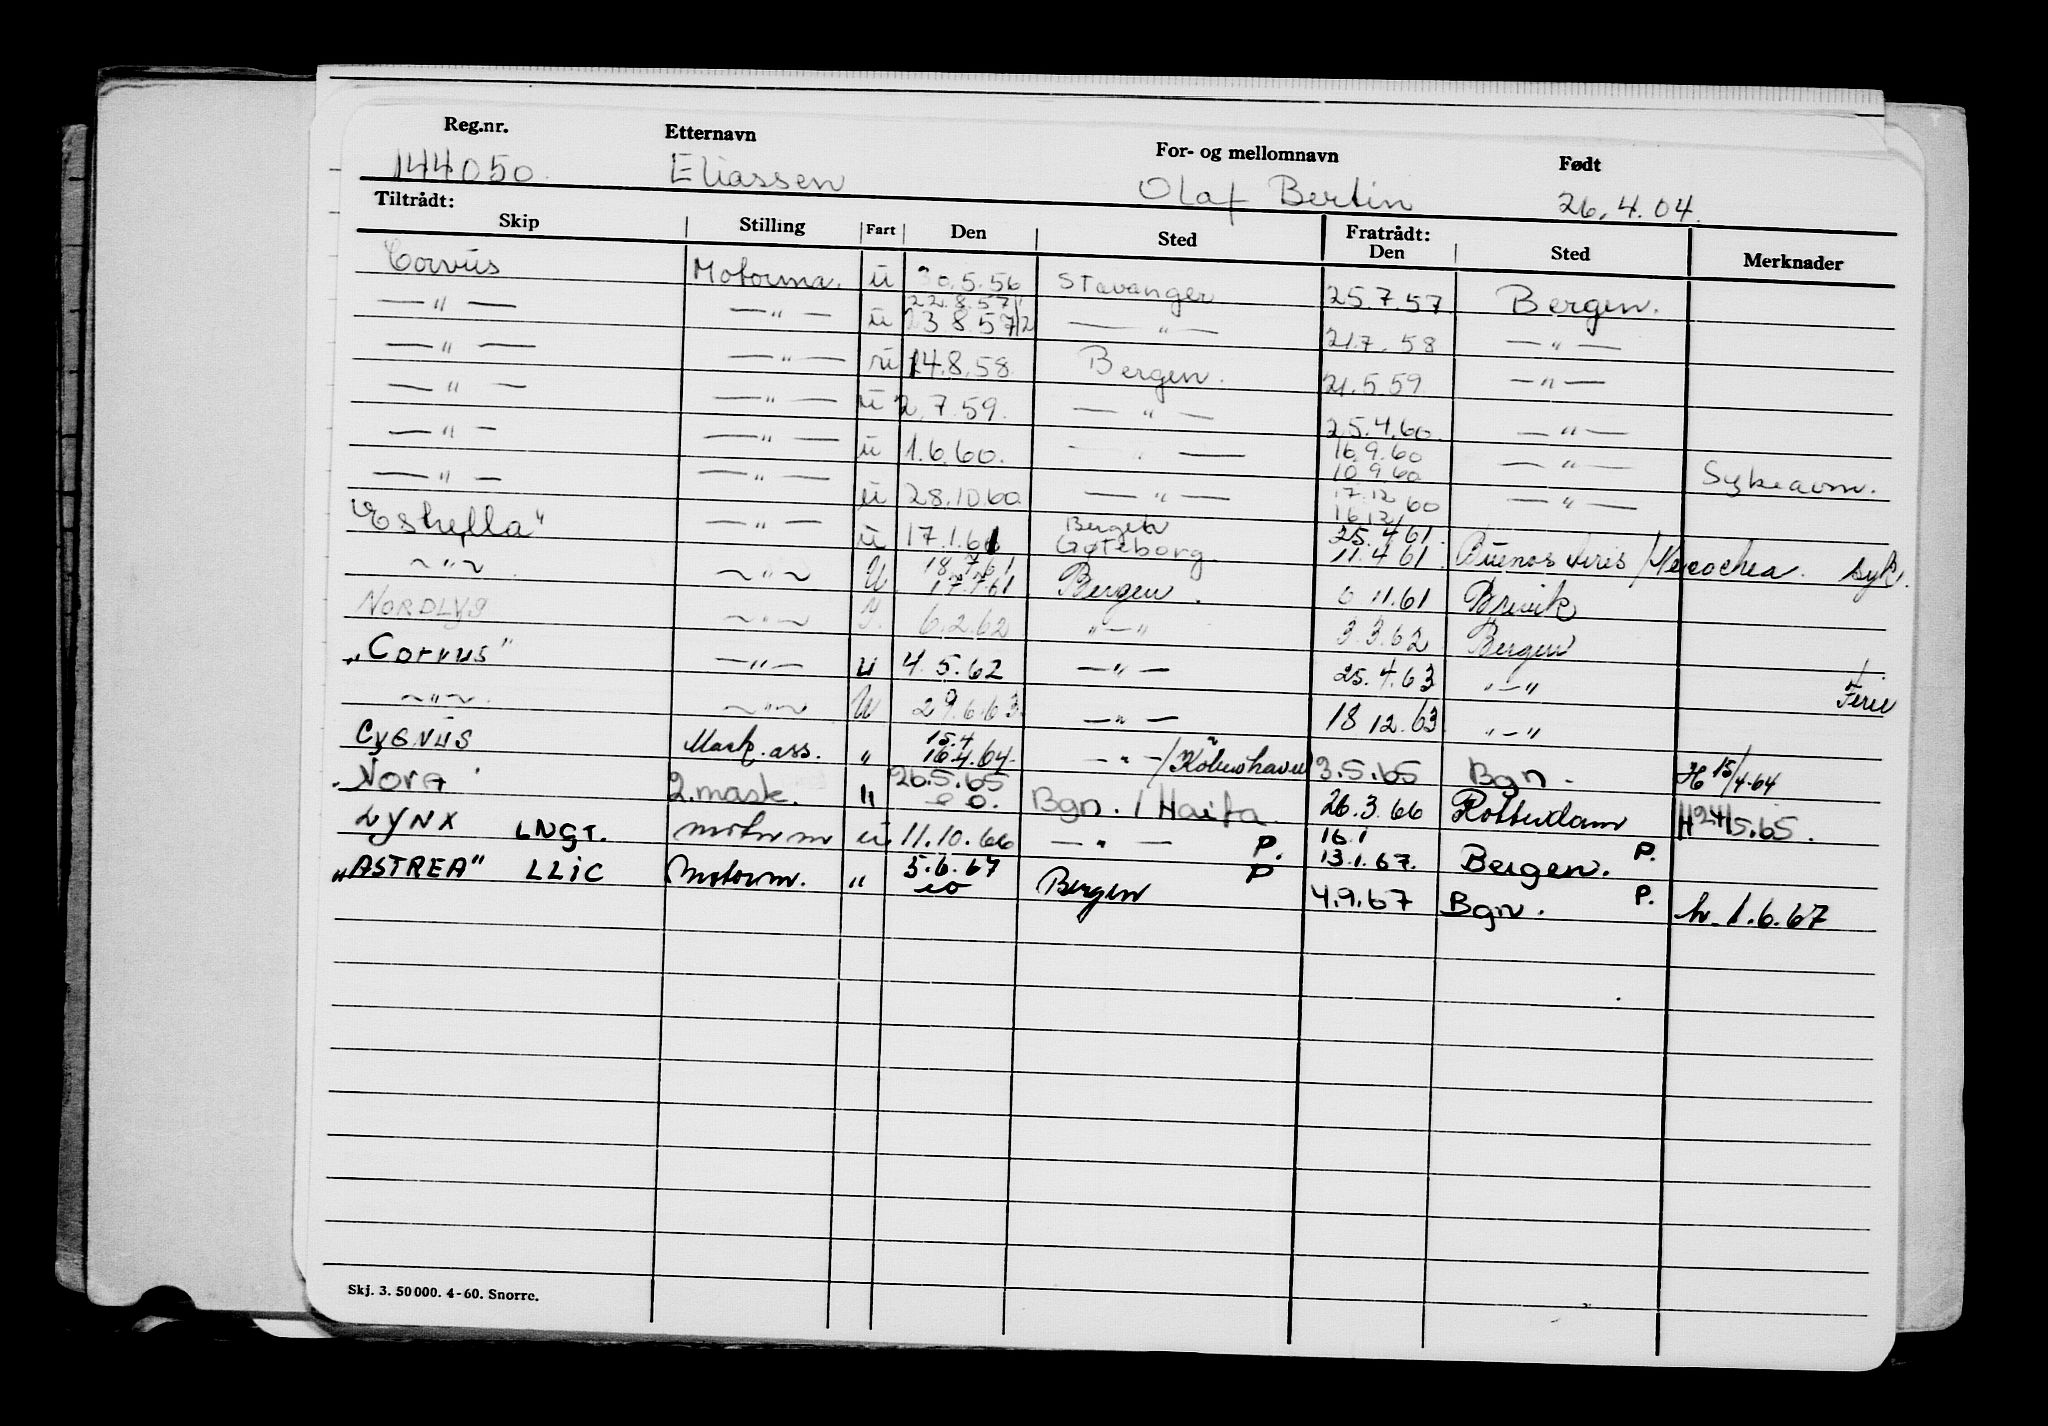 Reg.nr. Etternavn For- og mellomnavn Født
144050. Eliassen Olaf Bertin 26.4.04.
Tiltrådt: Fratrådt:
Skip Stilling Fart Den Sted Den Sted Merknader
Corvus Motorma. u 30.5.56 Stavanger 25.7.57 Bergen.
—"— —"— u 22.8.57 23.8.57 —"— 21.7.58 —"—
—"— —"— 14.8.58 Bergen. 21.5.59 —"—
—"— —"— u 2.7.59. —"— 25.4.60. —"—
—"— —"— u 1.6.60. —"— 16.9.60 10.9.60 —"— Sykeavm.
—"— —"— u 28.10.60 —"— 17.12 16.12 60 —"—
"Estrella" —"— u 17.1.61 Bergen Gøteborg. 25.4.61. 11.4.61. Buenos Aires / syk.
~"~ ~"~ U 18.7.61 17.7.61 Bergen. 11.61 Brevik
NORDLYS ~"~ 6.2.62 "—" 3.3.62 Bergen
"Corvus" —"— u 4.5.62 —"— 25.4.63 "—" Ferie
~"~ ~"~ U 29.6.63. —"— 18 12.63 "—"
CYGNUS Mask.ass. " 15.4 16.4.64. —"—/København 3.5.65 Bgn. H 15/4-64
"Nora" 2.mask. " 26.5.65 eo. Bgn. / Haifa. 26.3.66 Rotterdam H 24/5.65.
LYNX LNGT. motorm u. 11.10.66 —"— P. 16.1 13.1.67. Bergen. P.
"ASTREA" LLIC Motorm. " 5.6.67 eo Bergen P 4.9.67 Bgn. P. h. 1.6.67
Skj. 3. 50 000. 4-60. Snorre.